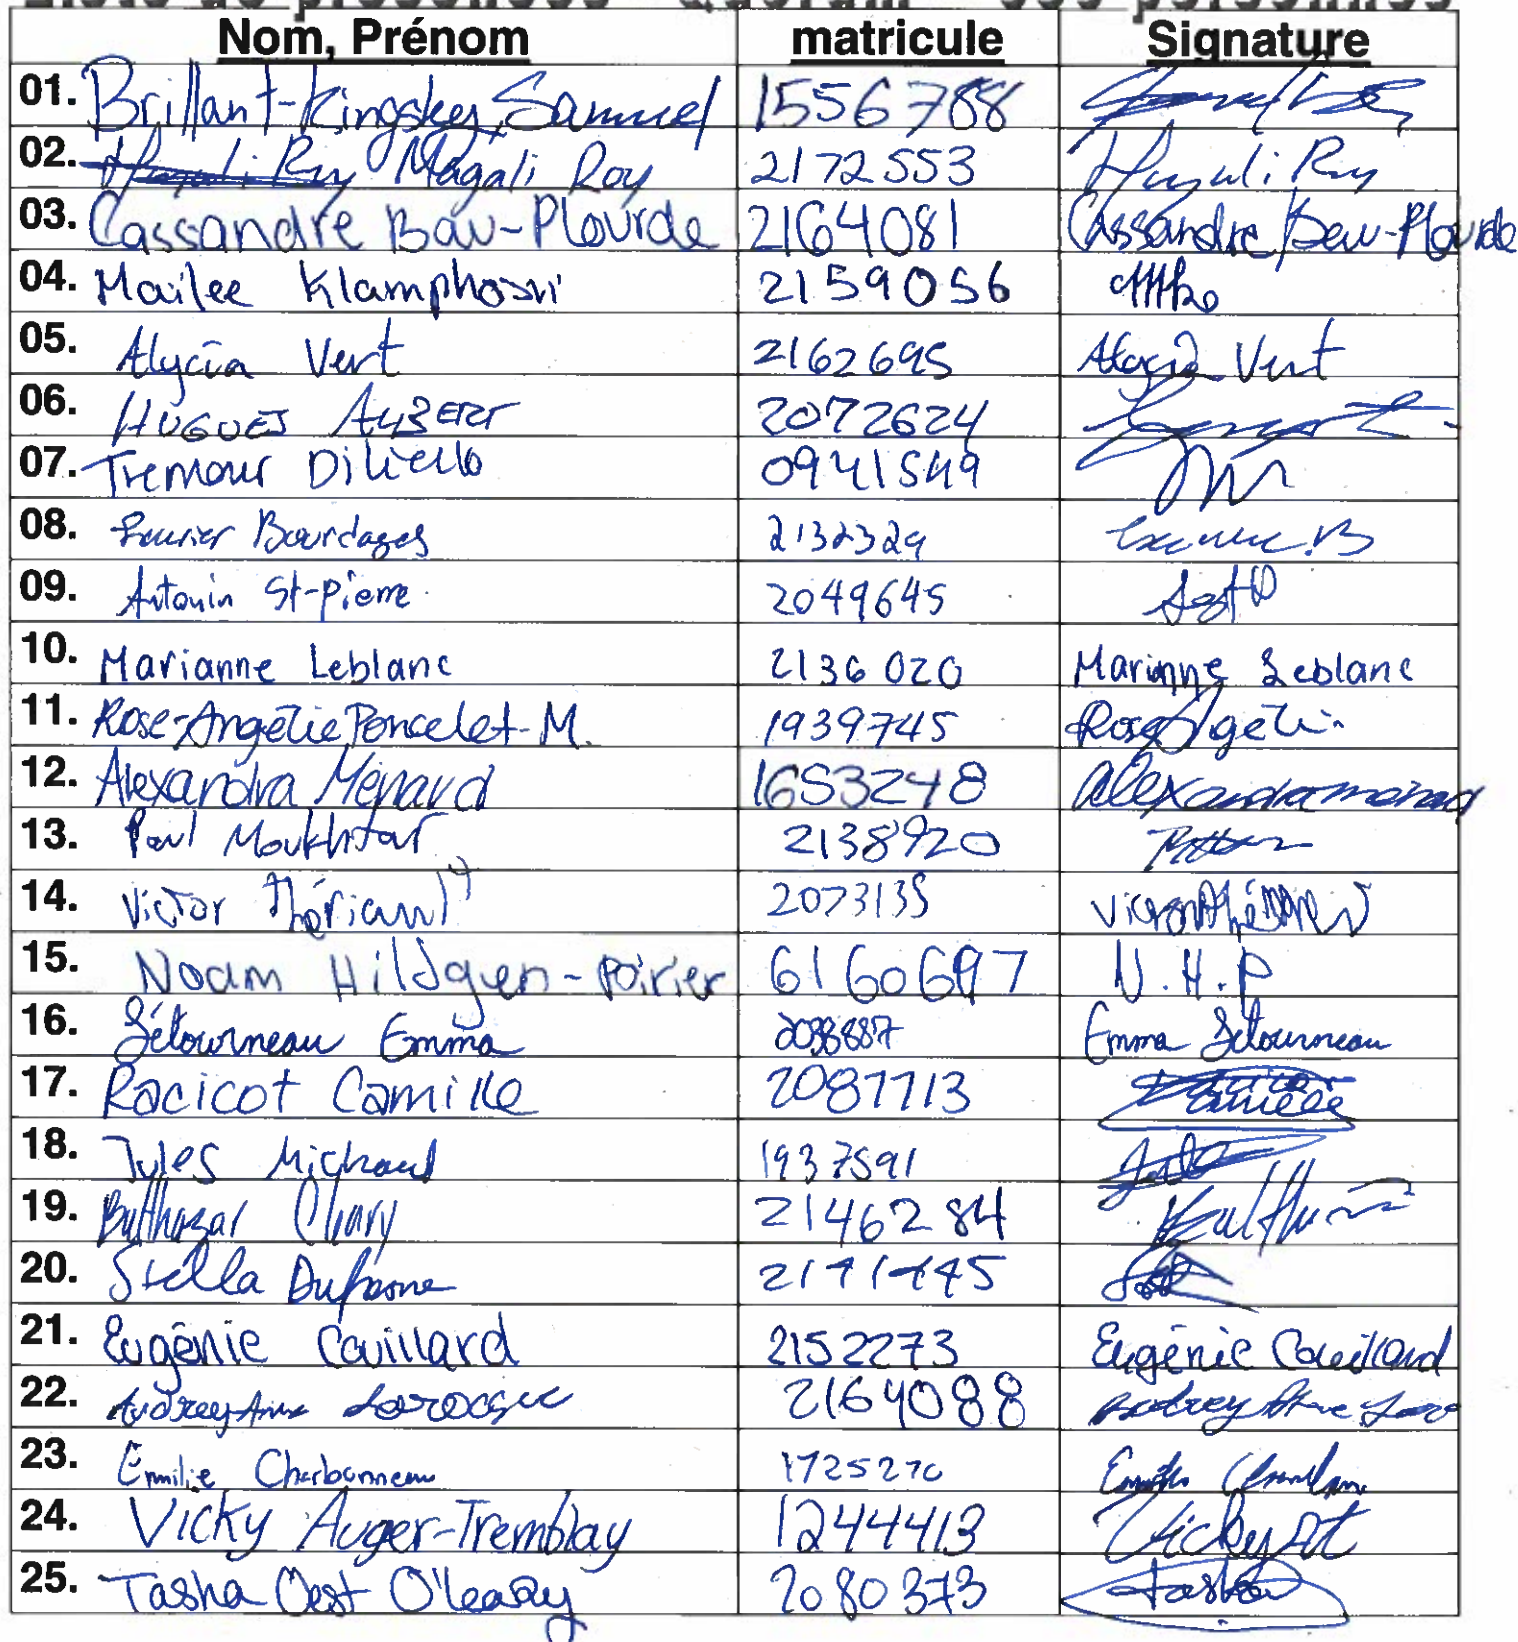 Liste de présences Quorum personnes
Nom, Prénom matricule Signature
01. Brillant-Kingsley, Samuel 1556788
02. Magali Roy 2172553
03. Cassandre Bau-Plourde 2164081 Cassandre Bau-Plourde
04. Maïlee 2159056
05. Alycia Vert 2162695 Alycia Vert
06. HUGUES AUBERT 2072624
07. 0941549
08. Bourdages 2132329
09. Antonin St-pierre 2049645
10. Marianne Leblanc 2136020 Marianne Leblanc
11. Rose-Angélie Poncelet-M. 1939745
12. Alexandra Ménard 1653248 Alexandra menard
13. Paul Moukhtar 2138920
14. Victor Thériault 2073135
15. Noam Hildgen-Poirier 6160697 N.H.P
16. Létourneau Emma Emma Létourneau
17. Racicot Camille 2087713 Camille
18. Jules Michaud 1937591
19. Balthazar 2146284
20. Stella Dufresne
21. Eugénie Couillard 2152273 Eugénie Couillard
22. Audrey Anne Larocque 2164088
23. Emilie Charbonneau 1725270
24. Vicky Auger-Tremblay 1244413 Vicky At
25. Tasha Oest O'leary 2080373 Tasha